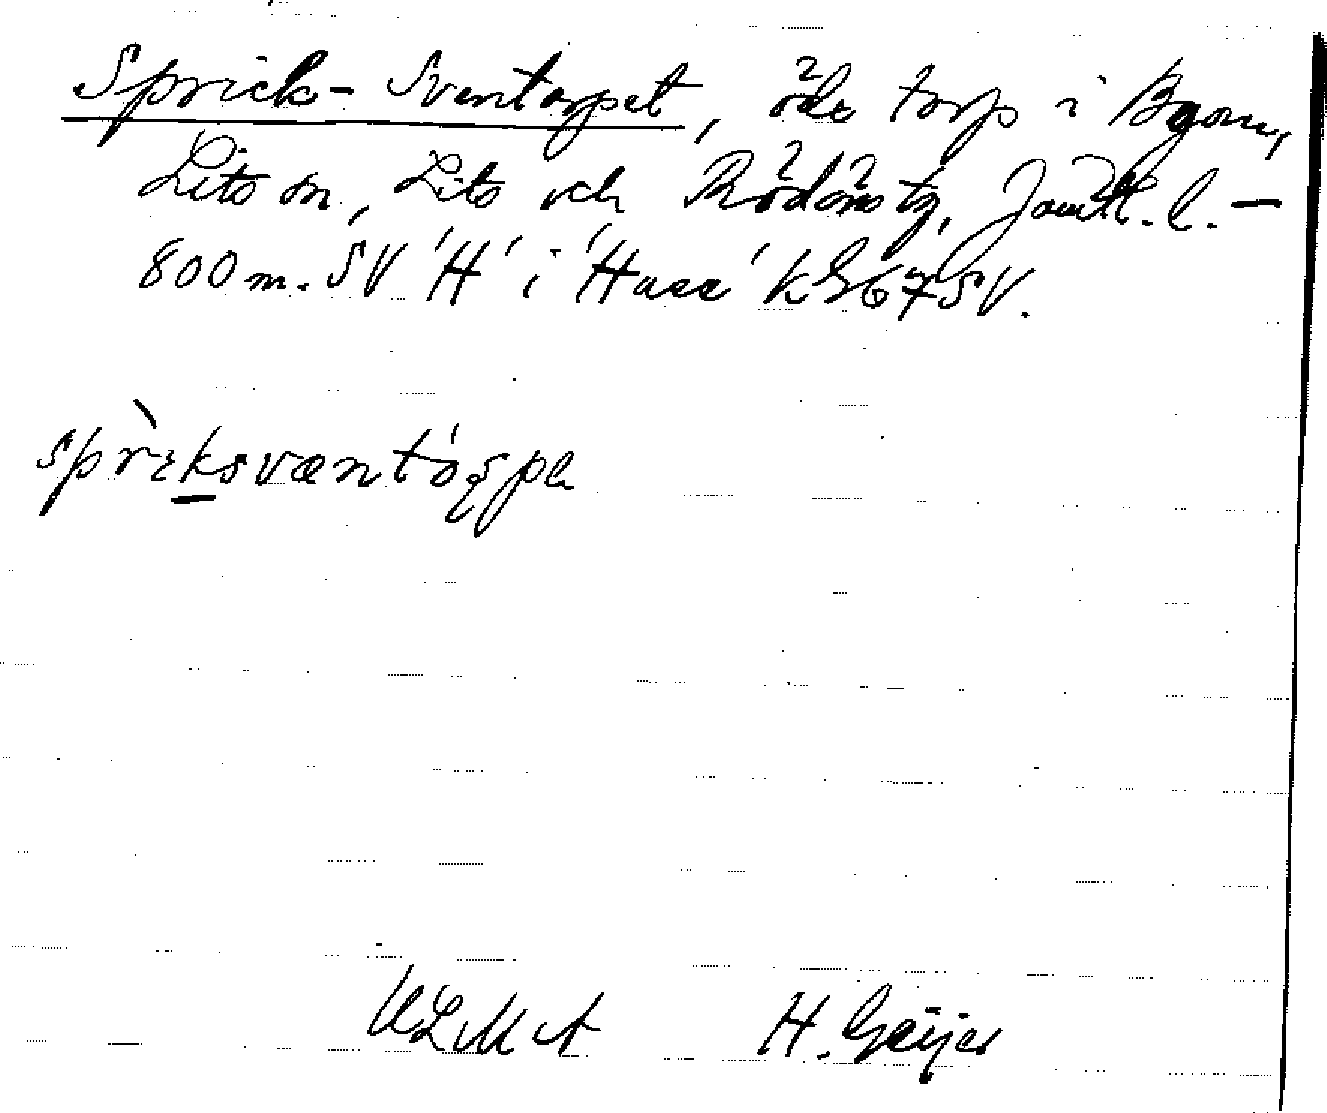 Sprick-Sventorpet, öde torp i Bye,
Lits sn, Lits och Rödöns tg, Jämtl. l. –
800 m. SV 'H' i 'Huse' kbl 67 SV.
sprɩksvæntòrpe
ULMA H. Geijer